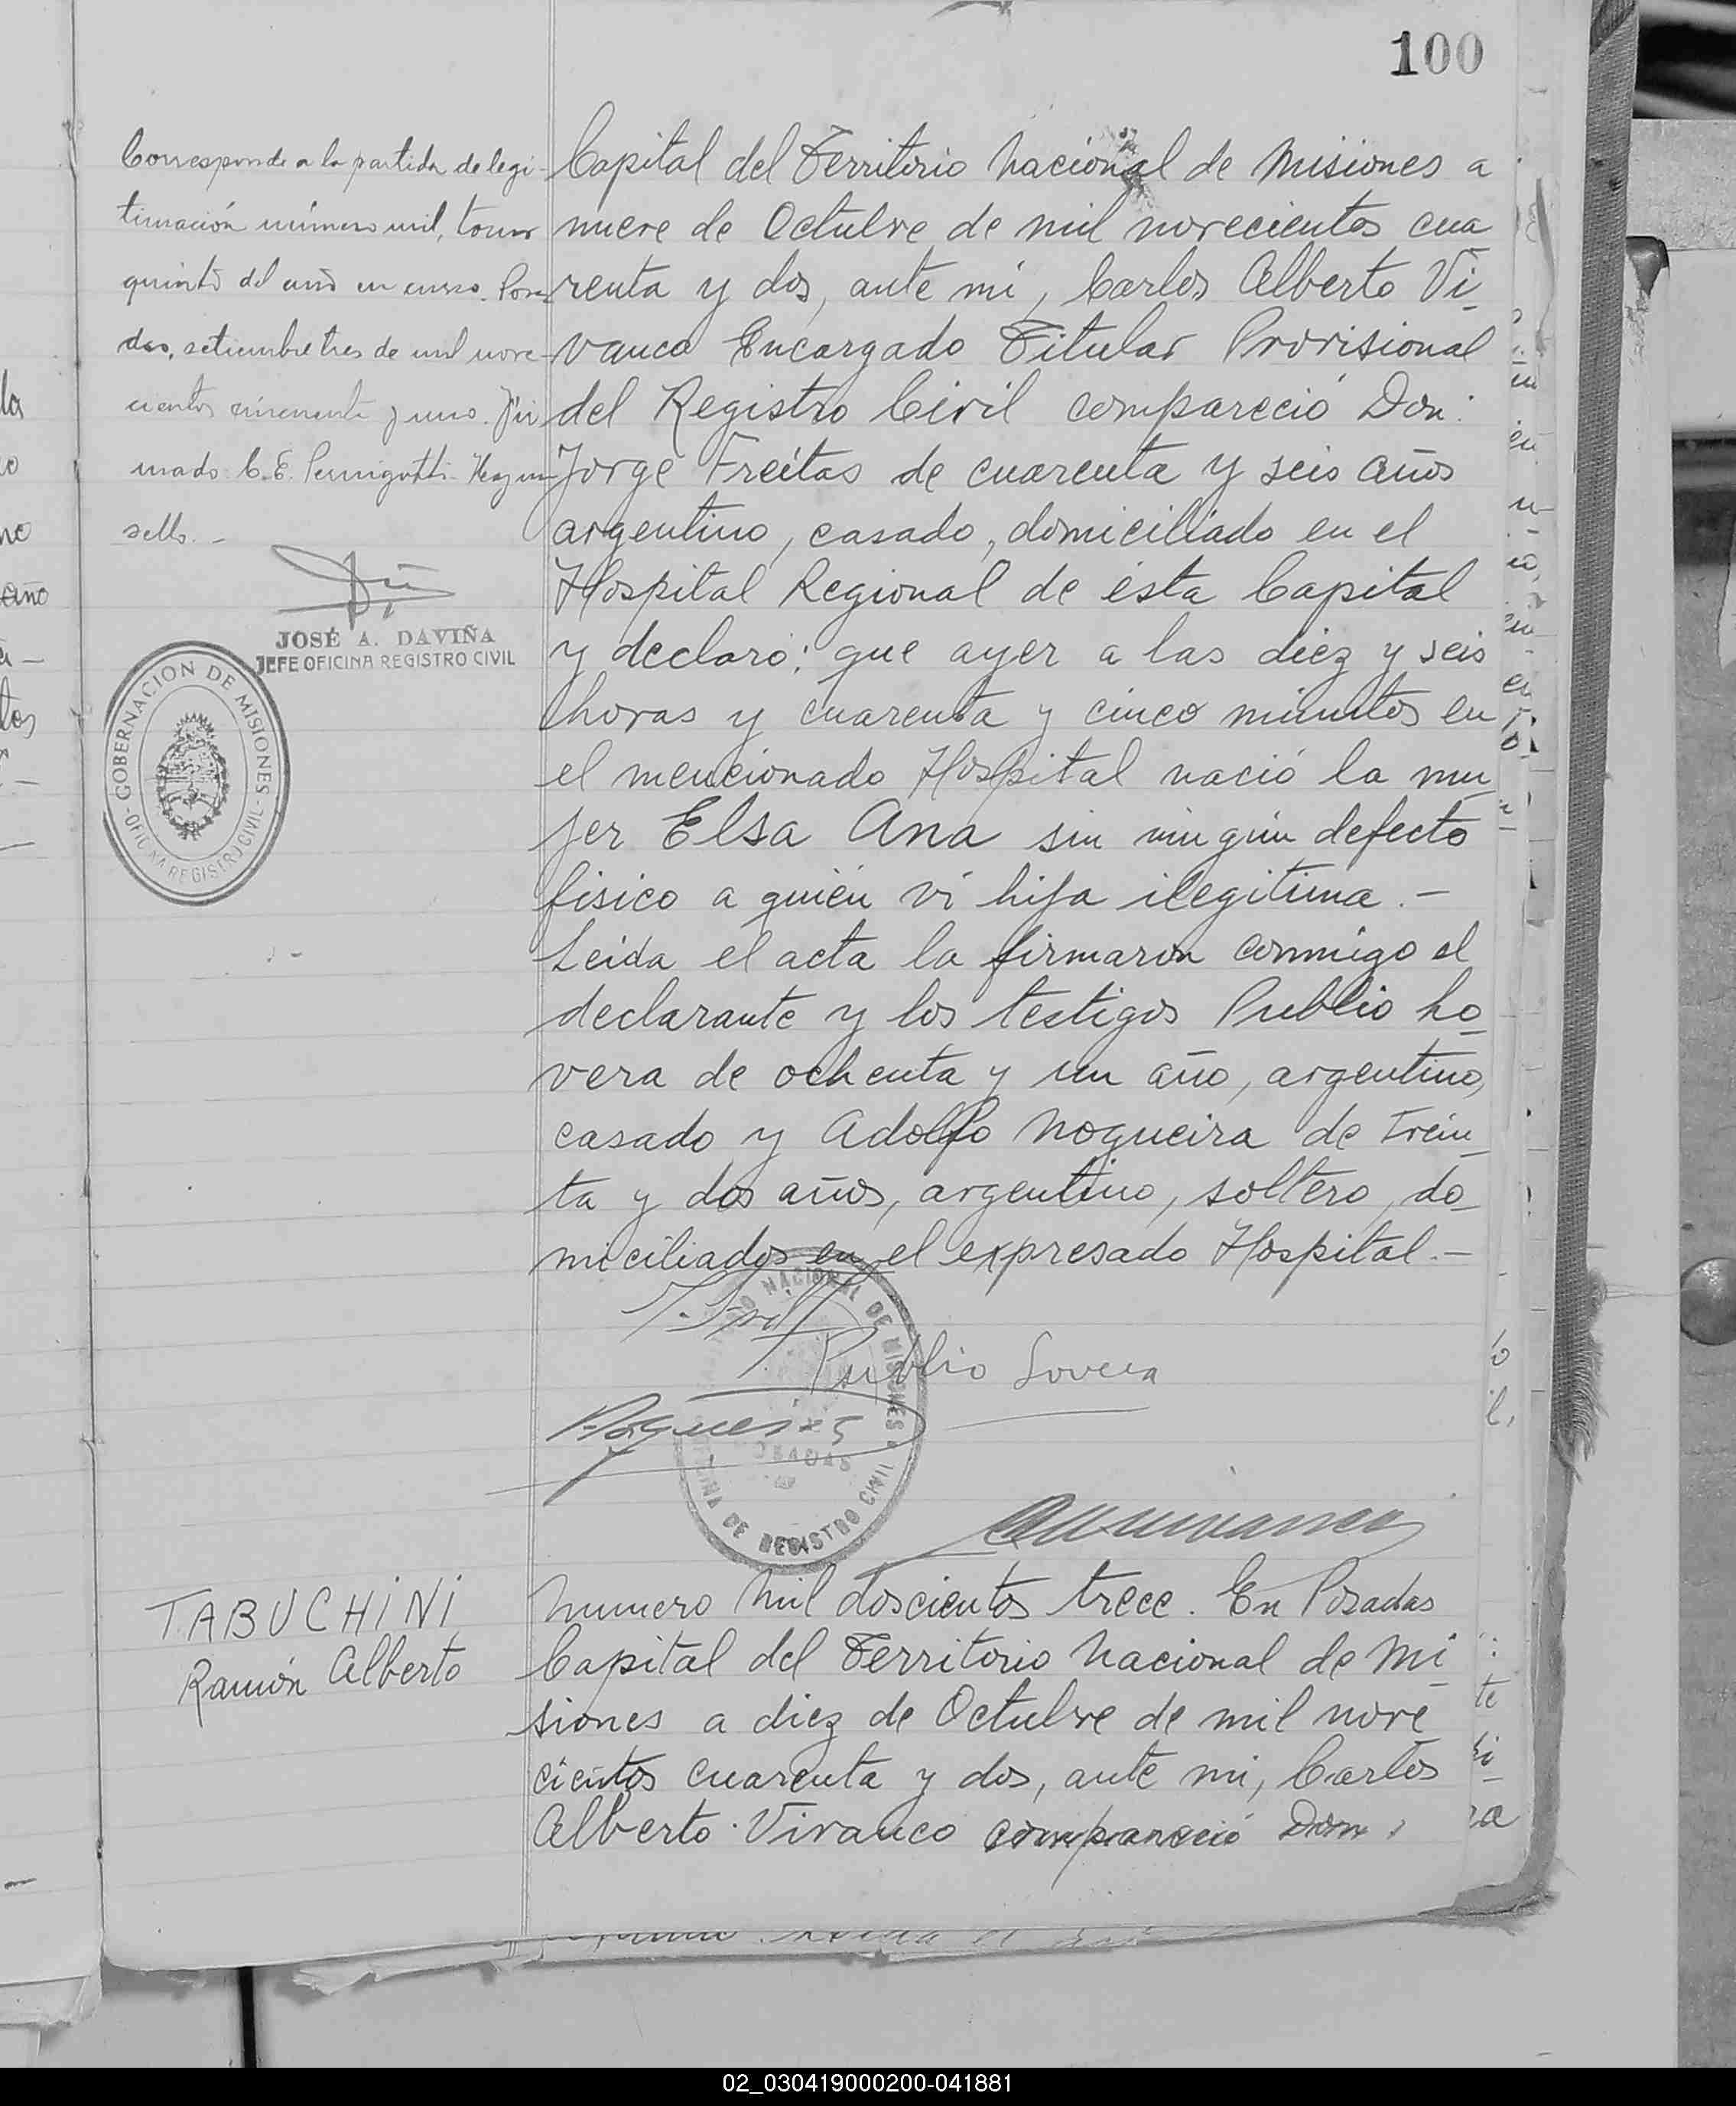 100
Corresponde a la partida de legi-
timación número mil, tomo
quinto del año en curso. Posa-
das, setiembre tres de mil nove-
cientos cincuenta y uno. Fir-
mado C. E. Hay un
sello. -
JOSÉ A. DAVIÑA
JEFE OFICINA REGISTRO CIVIL
GOBERNACION DE MISIONES
- OFICINA REGISTRO CIVIL -
Capital del Territorio Nacional de Misiones a
nueve de Octubre de mil novecientos cua
renta y dos, ante mí, Carlos Alberto Vi_
vanco Encargado Titular Provisional
del Registro Civil compareció Don:
Jorge Freitas de cuarenta y seis años
argentino, casado, domiciliado en el
Hospital Regional de ésta Capital
y declaró: que ayer a las diez y seis
horas y cuarenta y cinco minutos en
el mencionado Hospital nació la mu_
jer Elsa Ana sin ningún defecto
físico a quién ví hija ilegitima. -
Leida el acta la firmaron conmigo el
declarante y los testigos Publio Lo_
vera de ochenta y un año, argentino,
casado y Adolfo Nogueira de trein_
ta y dos años, argentino, soltero, do_
miciliados en el expresado Hospital. -
Publio Lovera
NACIONAL DE MISIONES
POSADAS
OFICINA DE REGISTRO CIVIL
TABUCHINI
Ramón Alberto
Numero Mil doscientos trece. En Posadas
Capital del Territorio Nacional de Mi_
siones a diez de Octubre de mil nove
cientos cuarenta y dos, ante mi, Carlos
Alberto Vivanco compareció Don:
02_030419000200-041881